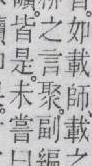 如載師載之
之言聚副編
皆是未嘗曰